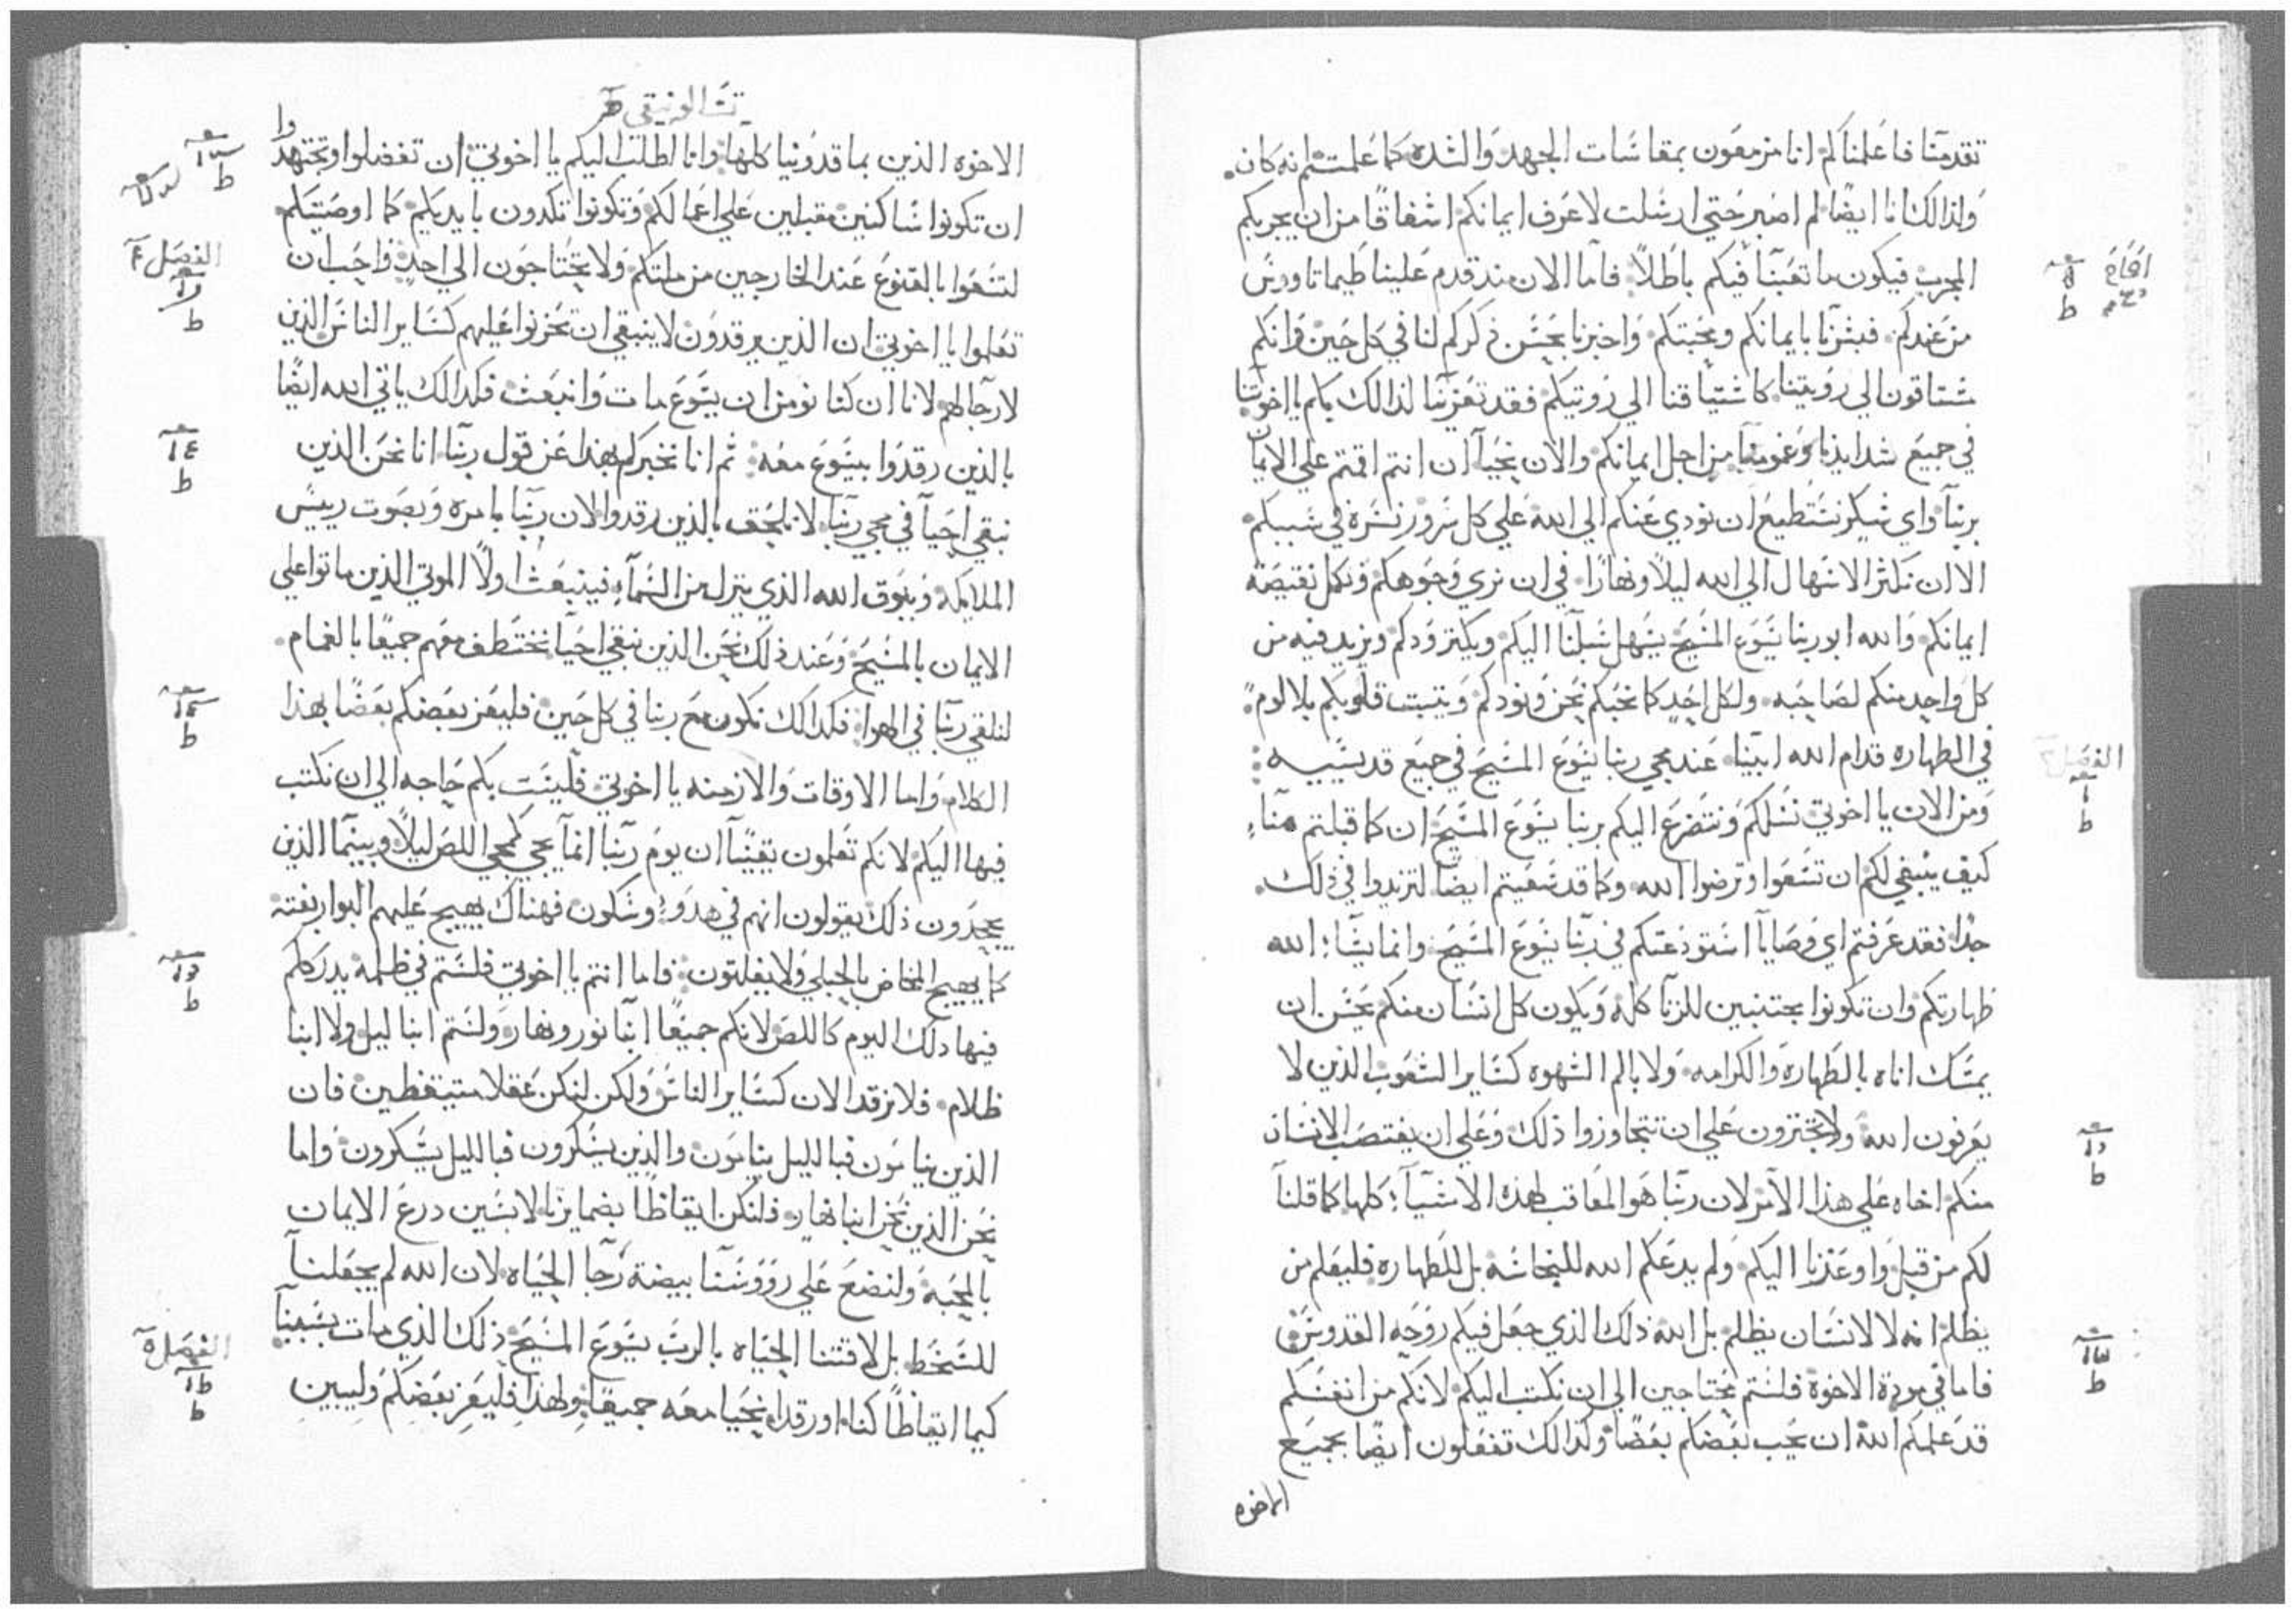 تقدمنا فاعلمناكم انا مزمعون بمقاسات الجهد والشده كما علمتم انه كان.
ولذالك انا ايضًا لم اصبر حتي ارسلت لاعرف ايمانكم اشفاقًا من ان يجربكم
المجرب فيكون ما تعبنا فيكم باطلاً فاما الان منذ قدم علينا طيماتاوس
من عندكم فبشرنا بايمانكم ومحبتكم واخبرنا بحسن ذكركم لنا في كل حين وانكم
مشتاقون الي رويتنا كاشتياقنا الي رويتكم فقد تعزينا لذالك بكم يا اخوتنا
في جميع شدايدنا وغمومنا من اجل ايمانكم والان نحيا ان انتم اقمتم علي الايمان
بربنا واي شكر نستطيع ان نودي عنكم الي الله علي كل سرور نسره في سببكم
الا ان نكثر الابتهال الي الله ليلاً ونهارًا في ان نري وجوهكم ونكمل نقيصة
ايمانكم والله ابو ربنا يسوع المسيح يسهل سبلنا اليكم ويكثر ودكم ويزيد فيه من
كل واحد منكم لصاحبه ولكل احد كما نحبكم نحن ونودكم ويثبت قلوبكم بلا لوم
في الطهاره قدام الله ابينا عند مجي ربنا يسوع المسيح في جميع قديسيه :
ومن الان يا اخوتي نسلكم ونتضرع اليكم بربنا يسوع المسيح ان كما قبلتم منا
كيف ينبغي لكم ان تسعوا وترضوا الله وكما قد سعيتم ايضًا لتزيدوا في ذلك
جدًا فقد عرفتم اي وصايا استودعتكم في ربنا يسوع المسيح وانما يشا الله
طهارتكم وان تكونوا مجتنبين للزنا كله ويكون كل انسان منكم يحسن ان
يمسك اناه بالطهاره والكرامه ولا بالم الشهوه كساير الشعوب الذين لا
يعرفون الله ولا تجترون علي ان تتجاوزوا ذلك وعلي ان يغتصب الانسان
منكم اخاه علي هذا الامر لان ربنا هو المعاقب لهذه الاشيا كلها كما قلنا
لكم من قبل واوعزنا اليكم ولم يدعكم الله للنجاسه بل للطهاره فليعلم من
يظلم انه لا لانسان يظلم بل الله ذلك الذي جعل فيكم روحه القدوس
فاما في مودة الاخوة فلستم محتاجين الي ان نكتب اليكم لانكم من انفسكم
قد علمكم الله ان يحب بعضكم بعضًا وكذالك تفعلون ايضًا بجميع
الاخوه
الفصل
الاخوه الذين بماقدونيا كلها وانا اطلب اليكم يا اخوتي ان تفضلوا وتجتهدوا
ان تكونوا ساكنين مقبلين علي اعمالكم وتكونوا تكدون بايديكم كما اوصيتكم
لتسعوا بالقنوع عند الخارجين من ملتكم ولا تحتاجون الي احد واحب ان
تعلموا يا اخوتي ان الذين يرقدون لا ينبغي ان تحزنوا عليهم كساير الناس الذين
لا رجا لهم لانا ان كنا نومن ان يسوع مات وانبعث فكذالك ياتي الله ايضًا
بالذين رقدوا بيسوع معه ثم انا نخبركم بهذا عن قول ربنا انا نحن الذين
نبقي احيا في مجي ربنا لا نلحق بالذين رقدوا لان ربنا بامره وبصوت رييس
الملايكه وببوق الله الذي ينزل من السما فينبعث اولاً الموتي الذين ماتوا علي
الايمان بالمسيح وعند ذلك نحن الذين نبقي احيا نختطف معهم جميعًا بالغمام
لنلقي ربنا في الهوا فكذالك نكون مع ربنا في كل حين فليعز بعضكم بعضًا بهذا
الكلام واما الاوقات والازمنه يا اخوتي فليست بكم حاجه الي ان نكتب
فيها اليكم لانكم تعلمون يقينًا ان يوم ربنا انما يجي كمجي اللص ليلاً وبينما الذين
يجحدون ذلك يقولون انهم في هدو وسكون فهناك يهيج عليهم البوار بغتة
كما يهيج المخاض بالحبلي ولا يفلتون فاما انتم يا اخوتي فلستم في ظلمة يدرككم
فيها ذلك اليوم كاللص لانكم جميعًا ابنا نور ونهار ولستم ابنا ليل ولا ابنا
ظلام فلا نرقد الان كساير الناس ولكن لنكن عقلا متيقظين فان
الذين ينامون فبالليل ينامون والذين يسكرون فبالليل يسكرون واما
نحن الذين نحن ابنا نهار فلنكن ايقاظًا بضمايرنا لابسين درع الايمان
بالمحبة ولنضع علي رووسنا بيضة رجا الحياه لان الله لم يجعلنا
للسخط بل لاقتنا الحياه بالرب يسوع المسيح ذلك الذي مات بسببنا
كيما ايقاظًا كنا او رقدا نحيا معه جميعًا ولهذا فليعز بعضكم وليبين
الفصل ٤
الفصل ٥